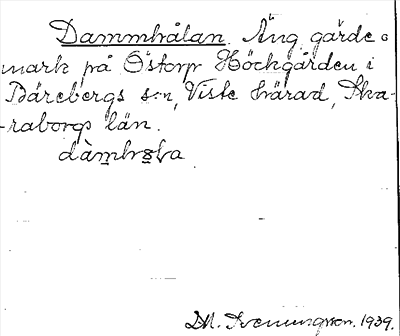 Dammhålan Äng, gärde o
mark på Östorp Höckgården i
Bärebergs s:n, Viste härad, Ska-
raborgs län.
dàmhɷla
D.M. Svenungsson. 1939.